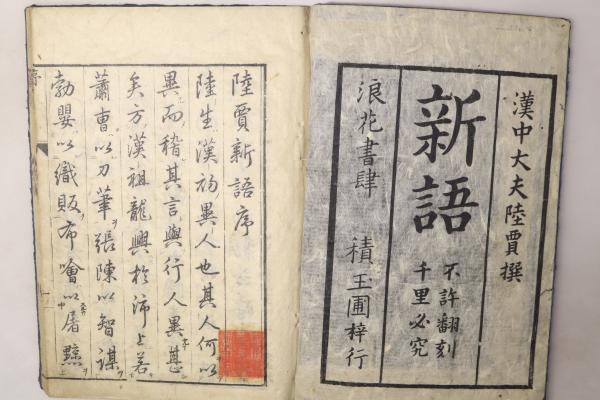 漢中大夫陸賈撰
新語
不許翻刻
千里必究
浪花書肆 積玉圃梓行
陸賈新語序
陸生漢初異人也其人何以
異而稽其言與行人異甚
矣方漢祖龍興於沛上若
蕭曹以刀筆張陳以智謀
勃嬰以織販布噲以屠黥